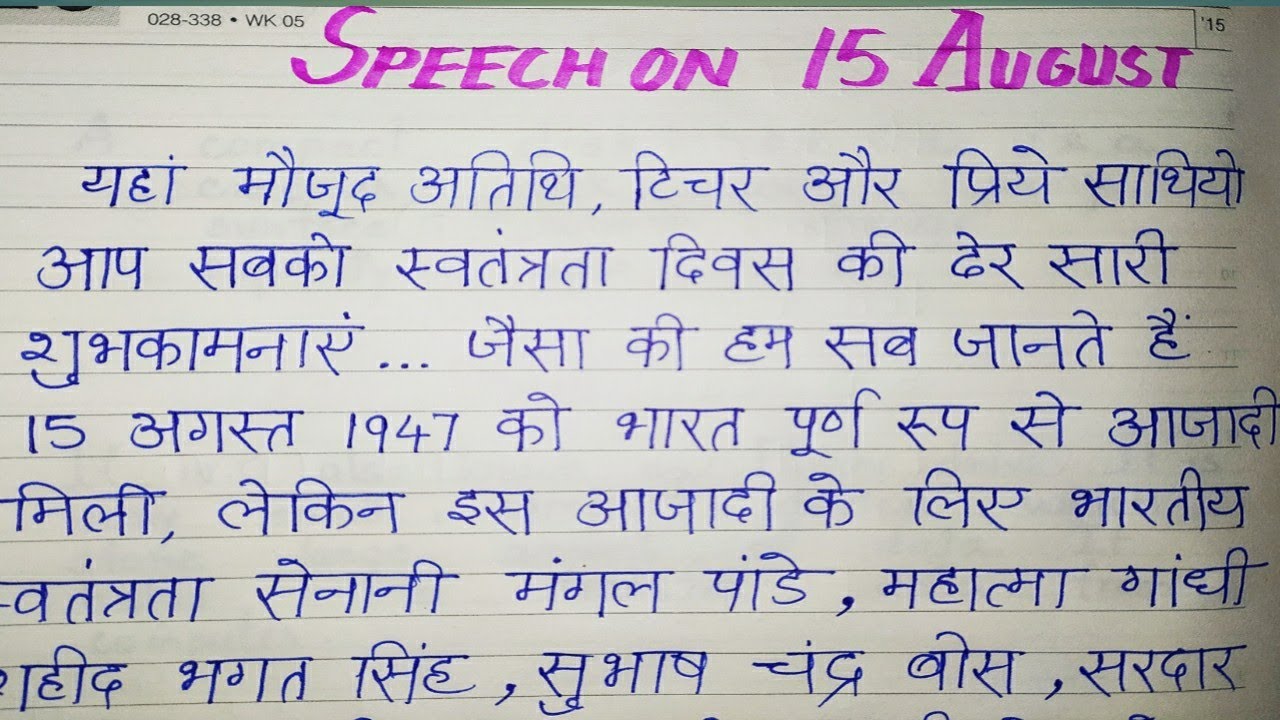 028-338 • WK 05
'15
SPEECH ON 15 AUGUST
यहां मौजूद अतिथि, टिचर और प्रिये साथियो
आप सबको स्वतंत्रता दिवस की ढेर सारी
शुभकामनाएं... जैसा की हम सब जानते हैं
15 अगस्त 1947 को भारत पूर्ण रुप से आजादी
मिली, लेकिन इस आजादी के लिए भारतीय
स्वतंत्रता सेनानी मंगल पांडे, महात्मा गांधी
शहीद भगत सिंह, सुभाष चंद्र बोस, सरदार